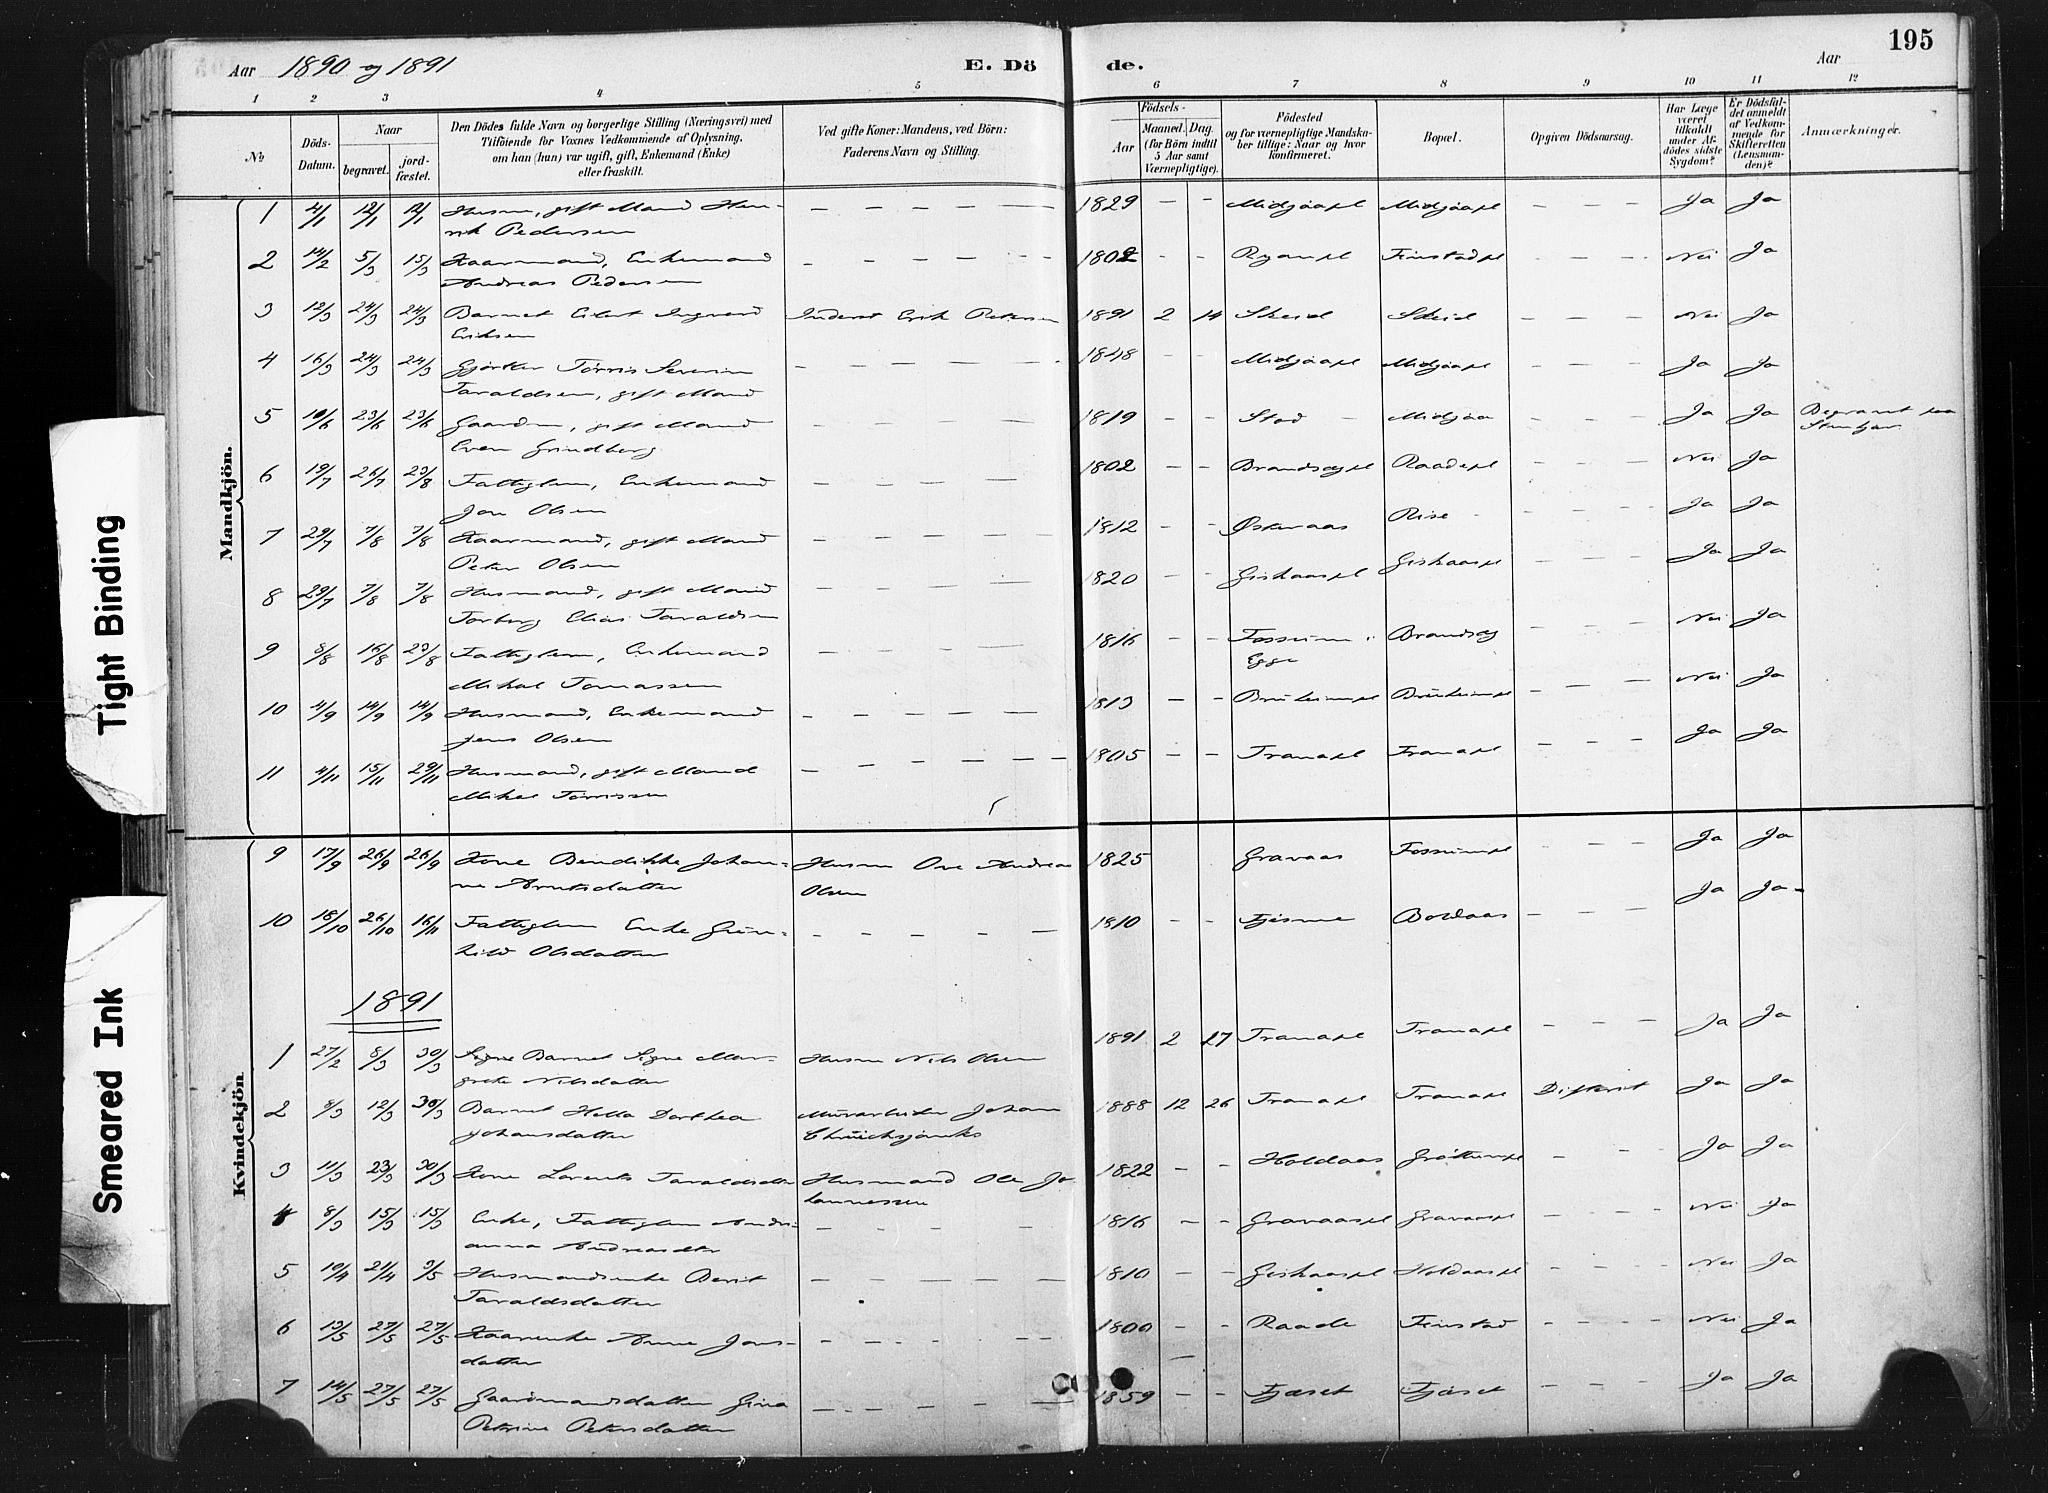 195
Aar 1890 og 1891 E. Dö de. Aar
1 2 3 4 5 6 7 8 9 10 11 12
№
Döds-Datum.
Naar
begravet.
jord-fæstet.
Den Dödes fulde Navn og borgerlige Stilling (Næringsvei) med
Tilföiende for Voxnes Vedkommende af Oplysning,
om han (hun) var ugift, gift, Enkemand (Enke)
eller fraskilt.
Ved gifte Koner: Mandens, ved Börn:
Faderens Navn og Stilling.
Födsels-
Aar
Maaned. Dag.
(for Börn indtil
5 Aar samt
Værnepligtige).
Födested
og for værnepligtige Mandska-
ber tillige: Naar og hvor
konfirmeret.
Bopæl.
Opgiven Dödsaarsag.
Har Læge
været
tilkaldt
under Af-
dödes sidste
Sygdom?
Er Dödsfal-
det anmeldt
af Vedkom-
mende for
Skifteretten
(Lensman-
den)?
Anmærkninger.
Mandkjön.
1 4/1 12/1 12/1 Husm, gift Mand Hen- — — — — — 1829 — — Midjaapl Midjaapl — — — Ja Ja
rik Pedersen
2 14/2 5/3 15/3 Kaarmand, Enkemand — — — — — 1802 — — Ryanpl Finstadpl — — — Nei Ja
Andreas Pedersen
3 12/3 24/3 24/3 Barnet Eilert Ingvard Inderst Erik Petersen 1891 2 14 Skeid Skeid — — — Nei Ja
Eriksen
4 16/3 24/3 24/3 Gjörtler Törris Severin — — — — — 1848 — — Midjaapl Midjaapl — — — Ja Ja
Taraldsen, gift Mand
5 10/6 23/6 23/6 Gaardm, gift Mand — — — — — 1819 Stod Midjaa — — — Ja Ja Begravet paa
Even Grindberg Stenkjær
6 19/7 26/7 23/8 Fattiglem, Enkemand — — — — — 1802 — — Brandsegpl Raadepl — — — Nei Ja
Jon Olsen
7 29/7 7/8 7/8 Kaarmand, gift Mand — — — — — 1812 — — Østeraas Rise — — — Ja Ja
Peter Olsen
8 29/7 7/8 7/8 Husmand, gift Mand — — — — — 1820 — — Giskaaspl Giskaaspl — — — Ja Ja
Torberg Elias Taraldsen
9 8/8 16/8 23/8 Fattiglem, Enkemand — — — — — 1816 — — Fossum i Brandseg — — — Nei Ja
Mikal Tomassen Egge
10 4/9 14/9 14/9 Husmand, Enkemand — — — — — 1813 — — Bruheimpl Bruheimpl — — — Nei Ja
Jens Olsen
11 4/11 15/11 29/11 Husmand, gift Mand — — — — — 1805 — — Tranapl Tranapl — — — Ja Ja
Mikal Törrissen
Kvindekjön
9 17/9 26/9 26/9 Kone Bendikke Johan- Husm Ove Andreas 1825 Gravaas Fossumpl — — — Ja Ja
ne Arntsdatter Olsen
10 18/10 26/10 16/11 Fattiglem Enke Gun- — — — — — 1810 — — Boldaas — — — Ja Ja
hild Olsdatter
1891
1 27/2 8/3 30/3 Signe Barnet Signe Mar- Husm Nils Olsen 1891 2 27 Tranapl Tranapl — — — Ja Ja
grete Nilsdatter
2 8/3 12/3 30/3 Barnet Hella Dorthea Murarbeider Johan 1888 12 26 Tranapl Tranapl Difterit Ja Ja
Johansdatter
3 11/3 23/3 30/3 Kone Lorents Taraldsdtr Husmand Ole Jo 1822 — — Holdaas Gröttumpl — — Ja Ja
hannessen
4 8/3 15/3 15/3 Enke, Fattiglem Andri- — — — — 1816 — — Gravaaspl Gravaaspl — — — Nei Ja
anna Andreasdtr
5 10/4 21/4 3/5 Husmandsenke Berit — — — — — 1810 — — Giskaaspl Holdaaspl — — — Nei Ja
Taraldsdatter
6 13/5 27/5 27/5 Kaarenke Anne Jons- — — — — — 1800 — — Raade Finstad — — — Nei Ja
datter
7 14/5 27/5 27/5 Gaardmandsdatter Gina — — — — — 1859 — — Fjæset Fjæset — — — Ja Ja
Petrine Petersdatter
Tight Binding
Smeared Ink